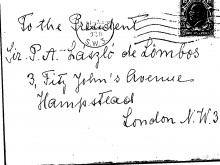 To the President
Sir P. A. László de Lombos
3, Fitz John's Avenue
Hampstead
London N.W.3
S.W.5